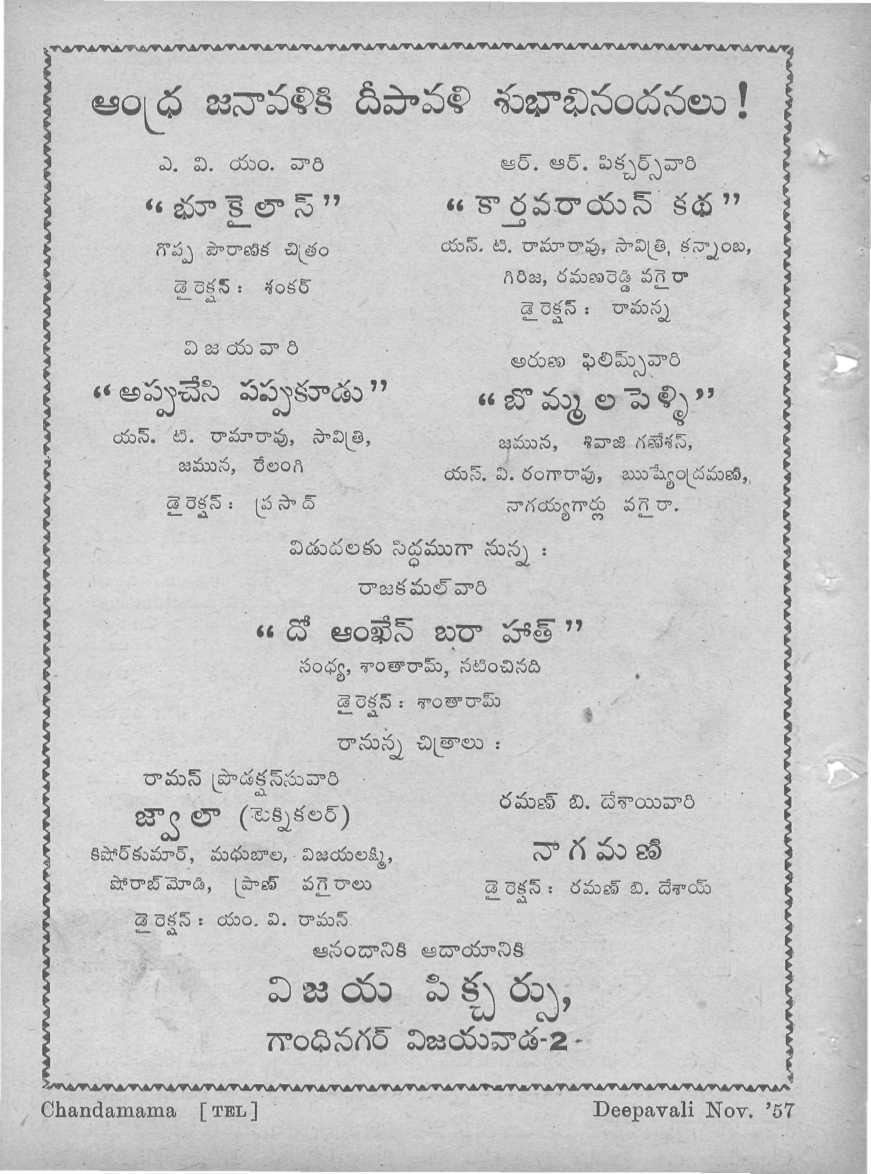 ఆంధ్ర జనావళికి దీపావళి శుభాభినందనలు!
ఎ. వి. యం. వారి
“భూకైలాస్”
గొప్ప పౌరాణిక చిత్రం
డైరెక్షన్ : శంకర్
ఆర్. ఆర్. పిక్చర్స్‌వారి
“కార్తవరాయన్ కథ”
యన్. టి. రామారావు, సావిత్రి, కన్నాంబ,
గిరిజ, రమణరెడ్డి వగైరా
డైరెక్షన్ : రామన్న
విజయవారి
“అప్పుచేసి పప్పుకూడు”
యన్. టి. రామారావు, సావిత్రి,
జమున, రేలంగి
డైరెక్షన్ : ప్రసాద్
అరుణ ఫిలిమ్స్‌వారి
“బొమ్మల పెళ్ళి”
జమున, శివాజి గణేశన్,
యస్. వి. రంగారావు, ఋష్యేంద్రమణి,
నాగయ్యగార్లు వగైరా.
విడుదలకు సిద్ధముగా నున్న :
రాజకమల్‌వారి
“దో ఆంఖేన్ బరా హాత్”
సంధ్య, శాంతారామ్, నటించినది
డైరెక్షన్ : శాంతారామ్
రానున్న చిత్రాలు :
రామన్ ప్రొడక్షన్‌సువారి
జ్వాలా (టెక్నికలర్)
కిషోర్‌కుమార్, మధుబాల, విజయలక్ష్మి,
షోరాబ్‌మోడి, ప్రాణ్ వగైరాలు
డైరెక్షన్ : యం. వి. రామన్
రమణ్ బి. దేశాయివారి
నాగమణి
డైరెక్షన్ : రమణ్ బి. దేశాయ్
ఆనందానికి ఆదాయానికి
విజయ పిక్చర్సు,
గాంధినగర్ విజయవాడ-2-
Chandamama [TEL]
Deepavali Nov. '57